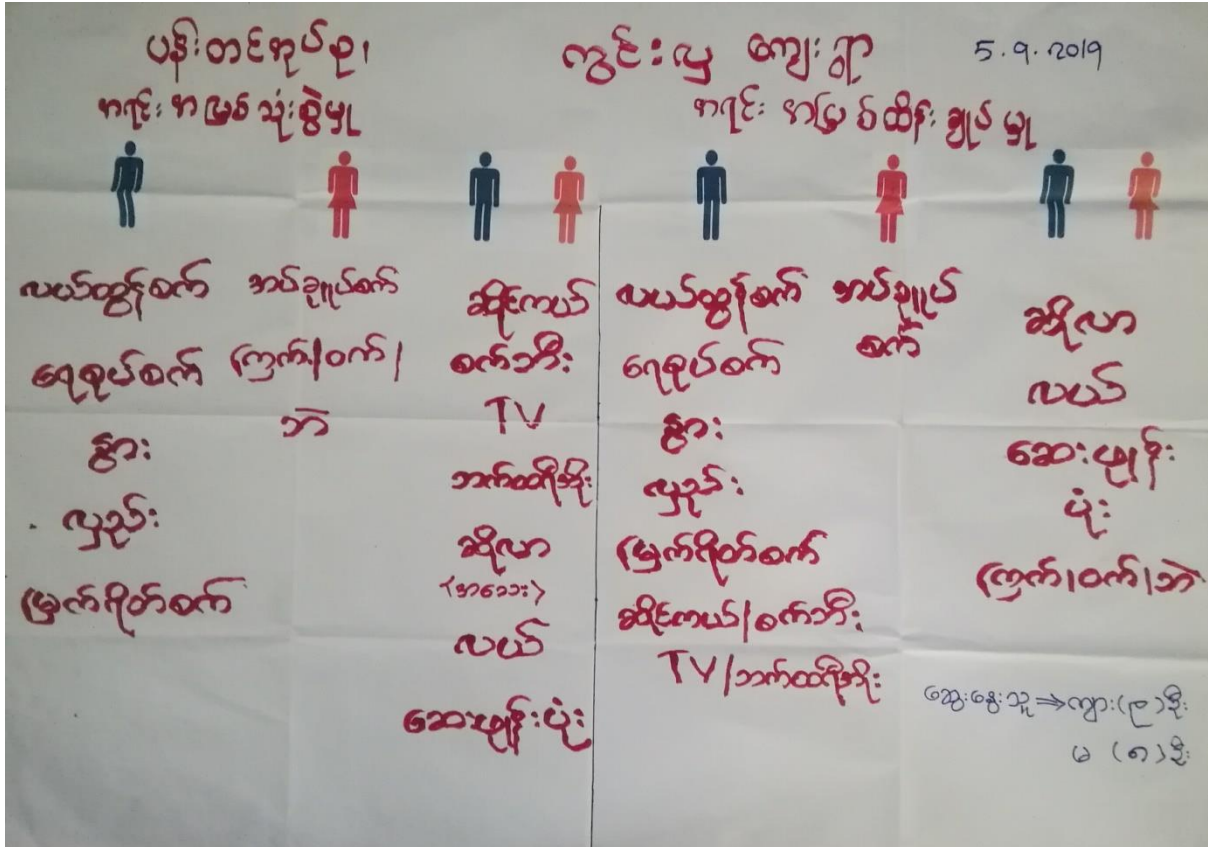 ပန်းတင်အုပ်စု၊ ကွင်းလှ ကျေးရွာ 5.9.2019
အရင်းအမြစ်သုံးစွဲမှု အရင်းအမြစ်ထိန်းချုပ်မှု
လယ်ထွန်စက်
ရေစုပ်စက်
နွား
လှည်း
မြက်ရိတ်စက်
အပ်ချုပ်စက်
ကြက်/ဝက်/
ဘဲ
ဆိုင်ကယ်
စက်ဘီး
TV
ဘက်ထရီအိုး
ဆိုလာ
(အသေး)
လယ်
ဆေးဖျန်းပုံး
လယ်ထွန်စက်
ရေစုပ်စက်
နွား
လှည်း
မြက်ရိတ်စက်
ဆိုင်ကယ်/စက်ဘီး
TV/ဘက်ထရီအိုး
အပ်ချုပ်
စက်
ဆိုလာ
လယ်
ဆေးဖျန်း
ပုံး
ကြက်/ဝက်/ဘဲ
ဆွေးနွေးသူ ⇒ ကျား(၉)ဦး
မ (၈)ဦး